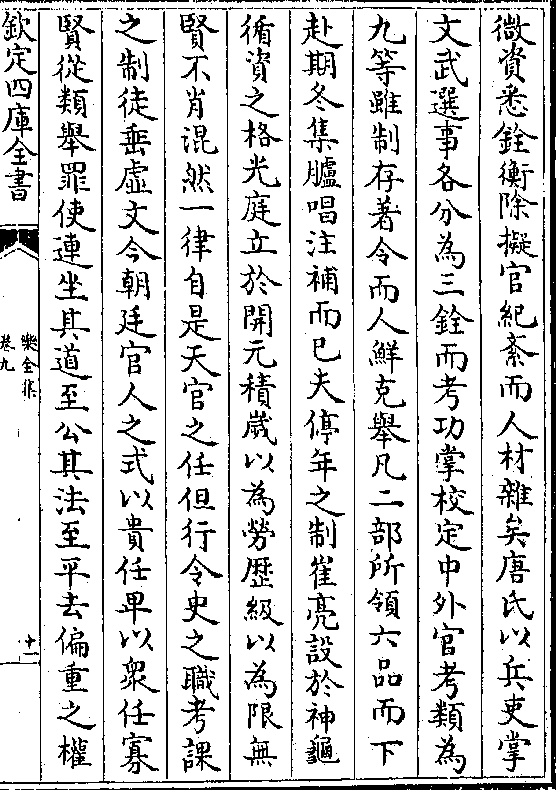 微資悉銓衡除擬官紀紊而人材雜矣唐氏以兵吏掌
文武選事各分為三銓而考功掌校定中外官考類為
九等雖制存著令而人鮮克舉凡二部所領六品而下
赴期冬集臚唱注補而已夫停年之制崔亮設於神龜
循資之格光庭立於開元積歲以為勞歷級以為限無
賢不肖混然一律自是天官之任但行令史之職考課
之制徒垂虛文今朝廷官人之式以貴任卑以眾任寡
賢從類舉罪使連坐其道至公其法至平去偏重之權
欽定四庫全書
樂全集
卷九
十一